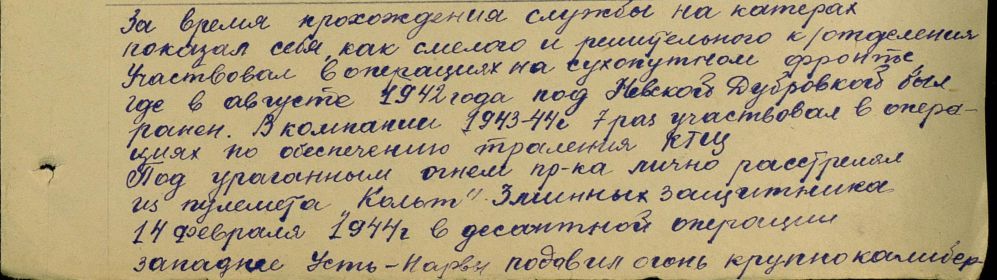 За время прохождения службы на катерах
показал себя, как смелого и решительного к/отделения
Участвовал в операциях на сухопутном фронте,
где в августе 1942 года под Невской Дубровкой был
ранен. В компании 1943-44г 7 раз участвовал в опера-
циях по обеспечению траления КТЩ
Под ураганным огнем пр-ка лично расстрелял
из пулемета "Кольт" 3 минных защитника
14 февраля 1944г в десантной операции
западнее Усть-Нарвы подавил огонь крупнокалибер-